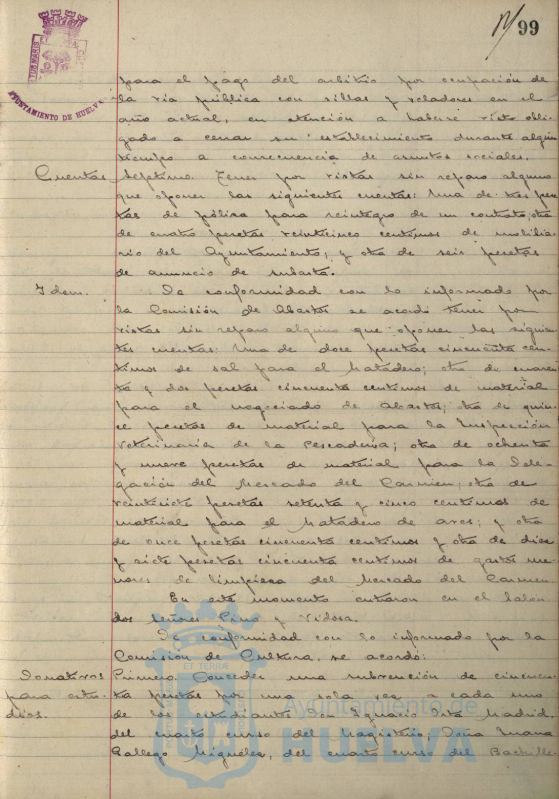 99
AYUNTAMIENTO DE HUELVA
para el pago del arbitrio por ocupación de
la vía pública con sillas y veladores en el
año actual, en atención a haberse visto obli-
gado a cerrar su establecimiento durante algún
tiempo a consecuencia de asuntos sociales.
Cuentas Septimo. Tener por vistas sin reparo alguno
que oponer las siguientes cuentas: Una de tres pese-
tas de póliza para reintegro de un contrato; otra
de cuatro pesetas veinticinco centimos de mobilia-
rio del Ayuntamiento; y otra de seis pesetas
de anuncio de subasta.
Idem. De conformidad con lo informado por
la Comisión de Abastos se acordó tener por
vistas sin reparo alguno que oponer las siguien-
tes cuentas: Una de doce pesetas cincuenta cen-
timos de sal para el Matadero; otra de cuaren-
ta y dos pesetas cincuenta centimos de material
para el negociado de Abastos; otra de quin-
ce pesetas de material para la Inspección
Veterinaria de la Pescaderia; otra de ochenta
y nueve pesetas de material para la Dele-
gación del Mercado del Carmen; otra de
veintisiete pesetas setenta y cinco centimos de
material para el Matadero de aves; y otra
de once pesetas cincuenta centimos y otra de diez
y siete pesetas cincuenta centimos de gastos me-
nores de limpieza del Mercado del Carmen.
En este momento entraron en el Salón
los señores Pino y Vidosa.
De conformidad con lo informado por la
Comision de Cultura, se acordó:
Donativos Primero. Conceder una subvención de cincuen-
para estu- ta pesetas por una sola vez a cada uno
dios. de los estudiantes Don Ignacio Orta Madrid,
del cuarto curso del Magisterio; Doña Juana
Gallego Miguélez, del cuarto curso del Bachille-
ET TERRÆ
Ayuntamiento de
HUELVA